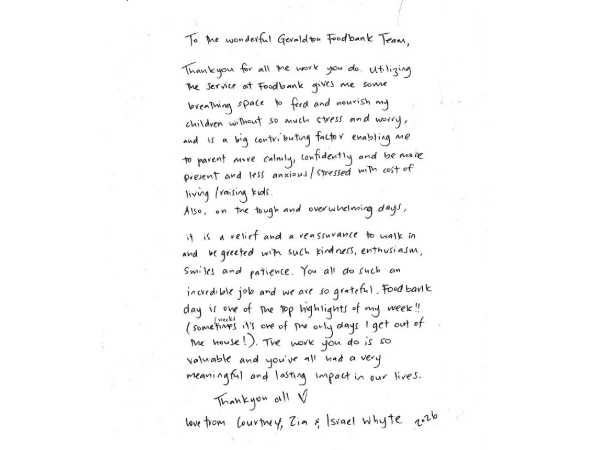 To the wonderful Geraldton Foodbank Team,
Thankyou for all the work you do. Utilizing
the service at Foodbank gives me some
breathing space to feed and nourish my
children without so much stress and worry,
and is a big contributing factor enabling me
to parent more calmly, confidently and be more
present and less anxious/stressed with cost of
living/raising kids.
Also, on the tough and overwhelming days,
it is a relief and a reassurance to walk in
and be greeted with such kindness, enthusiasm,
smiles and patience. You all do such an
incredible job and we are so grateful. Foodbank
day is one of the top highlights of my week!!
(sometimes weeks it's one of the only days I get out of
the house!). The work you do is so
valuable and you've all had a very
meaningful and lasting impact in our lives.
Thankyou all ♡
Love from Courtney, Zia & Israel Whyte 2026